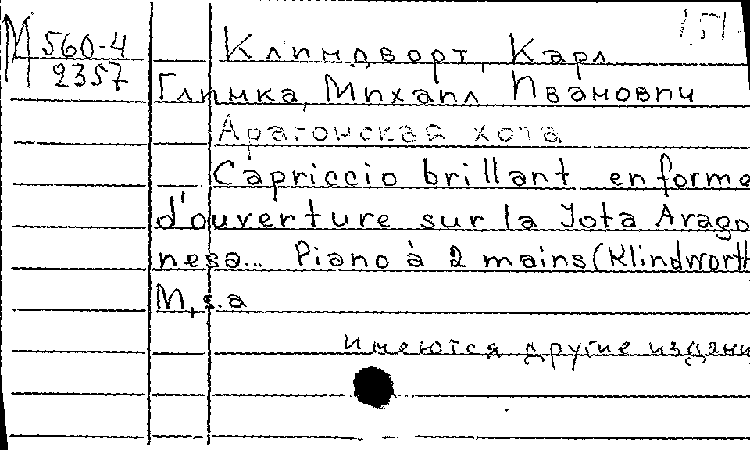 М 560-4
2357
151
Клиндворт, Карл
Глинка, Михаил Иванович
Арагонская хота
Capriccio brillant en forme
d'ouverture sur la Jota Arago
nesa... Piano à 2 mains (Klindworth
М, s.a
имеются другие издани